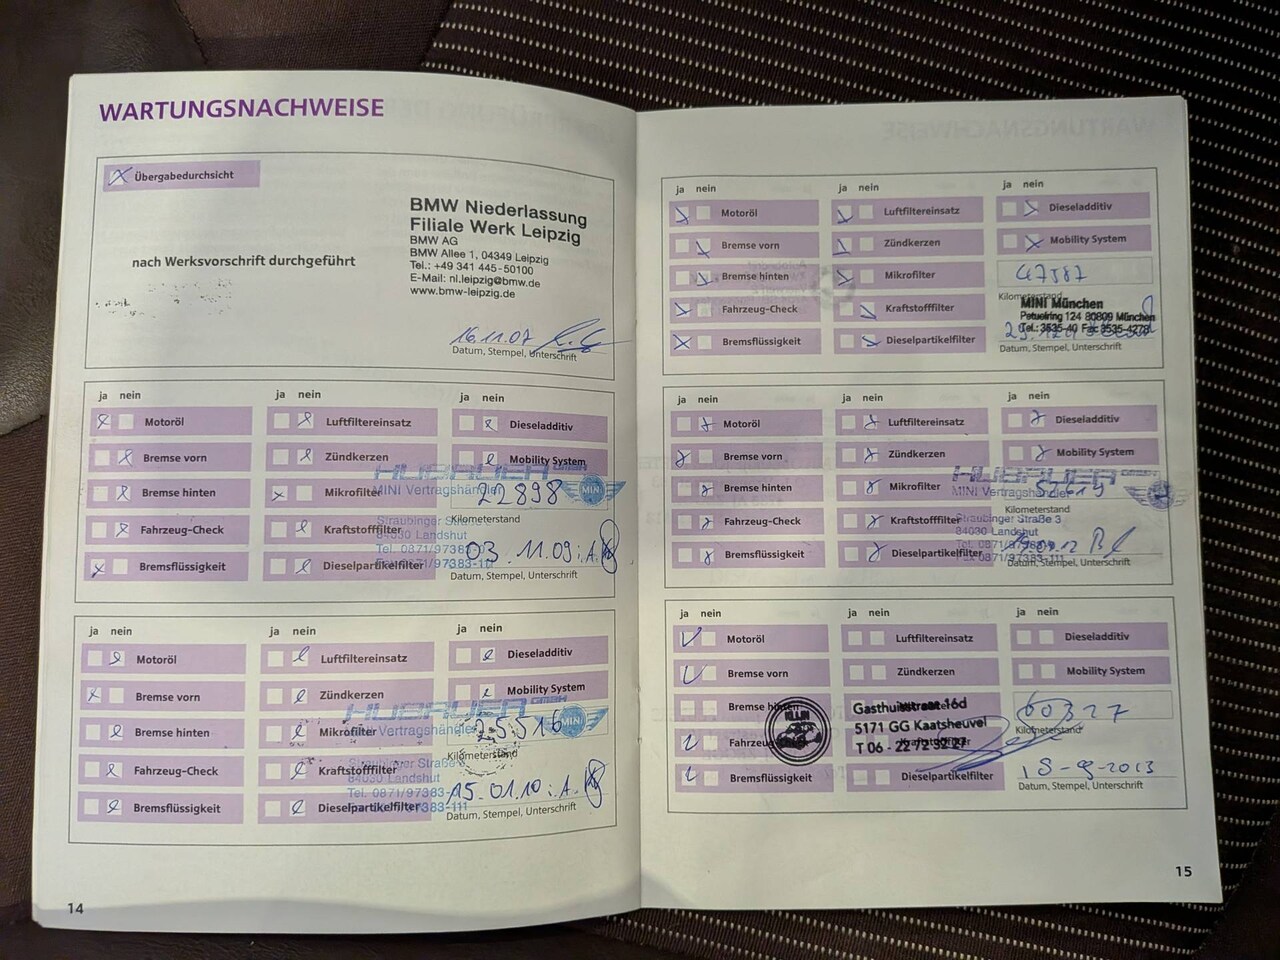 WARTUNGSNACHWEISE
Übergabedurchsicht
nach Werksvorschrift durchgeführt
BMW Niederlassung
Filiale Werk Leipzig
BMW AG
BMW Allee 1, 04349 Leipzig
Tel.: +49 341 445-50100
E-Mail: nl.leipzig@bmw.de
www.bmw-leipzig.de
16.11.07
Datum, Stempel, Unterschrift
ja nein
ja nein
ja nein
Motoröl
Luftfiltereinsatz
Dieseladditiv
Bremse vorn
Zündkerzen
Mobility System
HUBAUER GmbH
MINI
Bremse hinten
Mikrofilter
MINI Vertragshändler
22898
Kilometerstand
Fahrzeug-Check
Kraftstofffilter
84030 Landshut
03.11.09
Bremsflüssigkeit
Dieselpartikelfilter
Datum, Stempel, Unterschrift
ja nein
ja nein
ja nein
Motoröl
Luftfiltereinsatz
Dieseladditiv
Bremse vorn
Zündkerzen
Mobility System
HUBAUER GmbH
MINI
Bremse hinten
Mikrofilter
Vertragshändler
25516
Kilometerstand
Fahrzeug-Check
Kraftstofffilter
84030 Landshut
15.01.10
Bremsflüssigkeit
Dieselpartikelfilter
Datum, Stempel, Unterschrift
14
ja nein
ja nein
ja nein
Motoröl
Luftfiltereinsatz
Dieseladditiv
Bremse vorn
Zündkerzen
Mobility System
Bremse hinten
Mikrofilter
47387
Kilometerstand
Fahrzeug-Check
Kraftstofffilter
MINI München
Petuelring 124 80809 München
Tel.: 3535-40 Fax 3535-4278
Bremsflüssigkeit
Dieselpartikelfilter
Datum, Stempel, Unterschrift
ja nein
ja nein
ja nein
Motoröl
Luftfiltereinsatz
Dieseladditiv
Bremse vorn
Zündkerzen
Mobility System
HUBAUER GmbH
Bremse hinten
Mikrofilter
MINI Vertragshändler
Kilometerstand
Fahrzeug-Check
Kraftstofffilter
Straubinger Straße 3
84030 Landshut
Bremsflüssigkeit
Dieselpartikelfilter
Datum, Stempel, Unterschrift
ja nein
ja nein
ja nein
Motoröl
Luftfiltereinsatz
Dieseladditiv
Bremse vorn
Zündkerzen
Mobility System
Bremse hinten
Gasthuisstraat 16d
5171 GG Kaatsheuvel
T 06 - 22 72 32 27
60327
Kilometerstand
Fahrzeug-Check
Bremsflüssigkeit
Dieselpartikelfilter
Datum, Stempel, Unterschrift
15